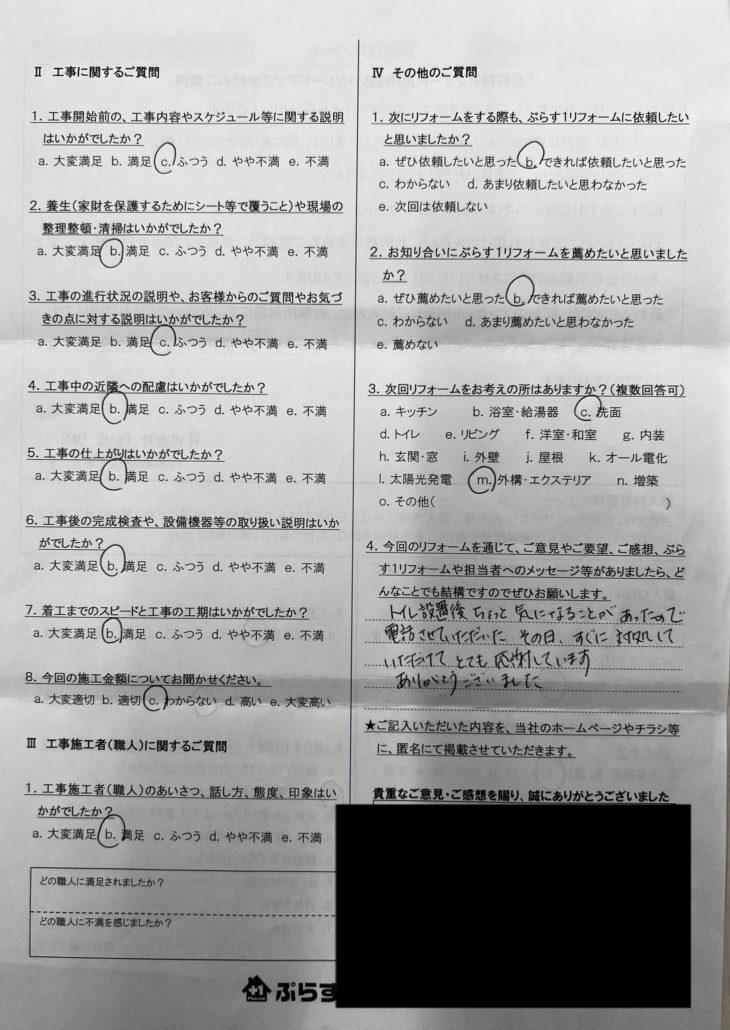 Ⅱ 工事に関するご質問
1. 工事開始前の、工事内容やスケジュール等に関する説明
はいかがでしたか?
a. 大変満足 b. 満足 c. ふつう d. やや不満 e. 不満
2. 養生(家財を保護するためにシート等で覆うこと)や現場の
整理整頓・清掃はいかがでしたか?
a. 大変満足 b. 満足 c. ふつう d. やや不満 e. 不満
3. 工事の進行状況の説明や、お客様からのご質問やお気づ
きの点に対する説明はいかがでしたか?
a. 大変満足 b. 満足 c. ふつう d. やや不満 e. 不満
4. 工事中の近隣への配慮はいかがでしたか?
a. 大変満足 b. 満足 c. ふつう d. やや不満 e. 不満
5. 工事の仕上がりはいかがでしたか?
a. 大変満足 b. 満足 c. ふつう d. やや不満 e. 不満
6. 工事後の完成検査や、設備機器等の取り扱い説明はいか
がでしたか?
a. 大変満足 b. 満足 c. ふつう d. やや不満 e. 不満
7. 着工までのスピードと工事の工期はいかがでしたか?
a. 大変満足 b. 満足 c. ふつう d. やや不満 e. 不満
8. 今回の施工金額についてお聞かせください。
a. 大変適切 b. 適切 c. わからない d. 高い e. 大変高い
Ⅲ 工事施工者(職人)に関するご質問
1. 工事施工者(職人)のあいさつ、話し方、態度、印象はい
かがでしたか?
a. 大変満足 b. 満足 c. ふつう d. やや不満 e. 不満
どの職人に満足されましたか?
どの職人に不満を感じましたか?
Ⅳ その他のご質問
1. 次にリフォームをする際も、ぷらす1リフォームに依頼したい
と思いましたか?
a. ぜひ依頼したいと思った b. できれば依頼したいと思った
c. わからない d. あまり依頼したいと思わなかった
e. 次回は依頼しない
2. お知り合いにぷらす1リフォームを薦めたいと思いました
か?
a. ぜひ薦めたいと思った b. できれば薦めたいと思った
c. わからない d. あまり薦めたいと思わなかった
e. 薦めない
3. 次回リフォームをお考えの所はありますか?(複数回答可)
a. キッチン b. 浴室・給湯器 c. 洗面
d. トイレ e. リビング f. 洋室・和室 g. 内装
h. 玄関・窓 i. 外壁 j. 屋根 k. オール電化
l. 太陽光発電 m. 外構・エクステリア n. 増築
o. その他( )
4. 今回のリフォームを通じて、ご意見やご要望、ご感想、ぷら
す1リフォームや担当者へのメッセージ等がありましたら、ど
んなことでも結構ですのでぜひお願いします。
トイレ設置後 ちょっと 気になることが あったので
電話させていただいた その日、すぐに 対処して
いただけて とても 感謝しています
ありがとうございました
★ご記入いただいた内容を、当社のホームページやチラシ等
に、匿名にて掲載させていただきます。
貴重なご意見・ご感想を賜り、誠にありがとうございました
+1
ぷらす